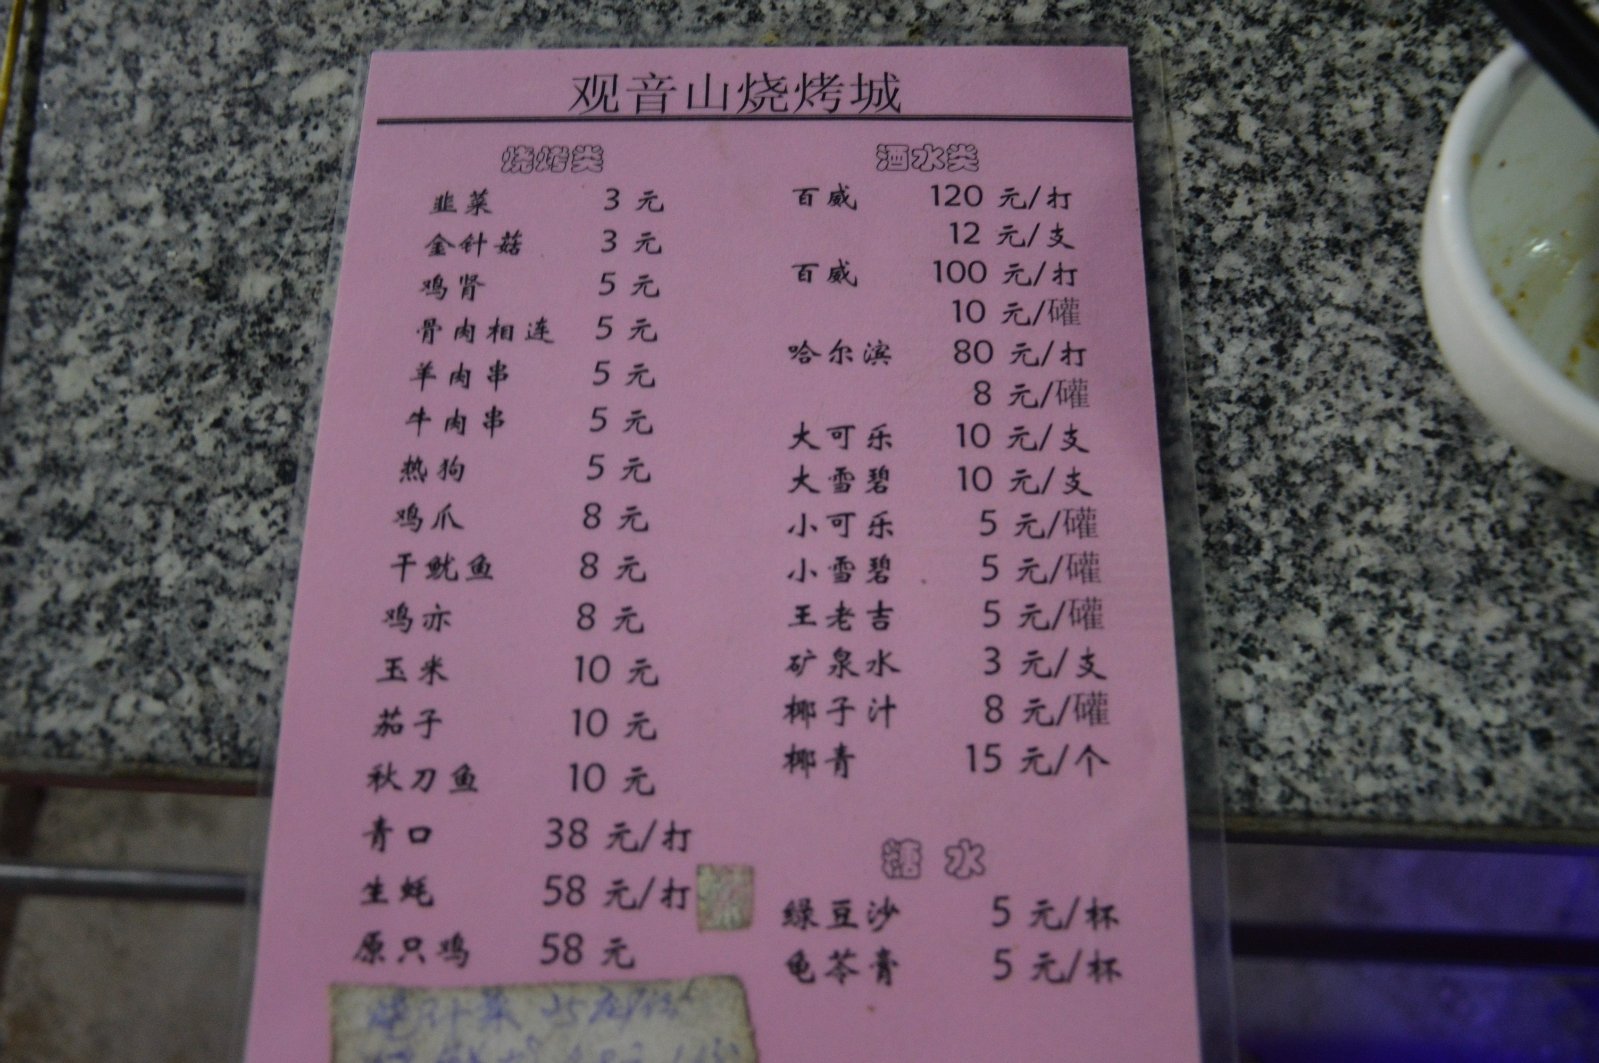 观音山烧烤城
烧烤类
韭菜 3 元
金针菇 3 元
鸡肾 5 元
骨肉相连 5 元
羊肉串 5 元
牛肉串 5 元
热狗 5 元
鸡爪 8 元
干鱿鱼 8 元
鸡亦 8 元
玉米 10 元
茄子 10 元
秋刀鱼 10 元
青口 38 元/打
生蚝 58 元/打
原只鸡 58 元
酒水类
百威 120 元/打
12 元/支
百威 100 元/打
10 元/礶
哈尔滨 80 元/打
8 元/礶
大可乐 10 元/支
大雪碧 10 元/支
小可乐 5 元/礶
小雪碧 5 元/礶
王老吉 5 元/礶
矿泉水 3 元/支
椰子汁 8 元/礶
椰青 15 元/个
糖水
绿豆沙 5 元/杯
龟苓膏 5 元/杯